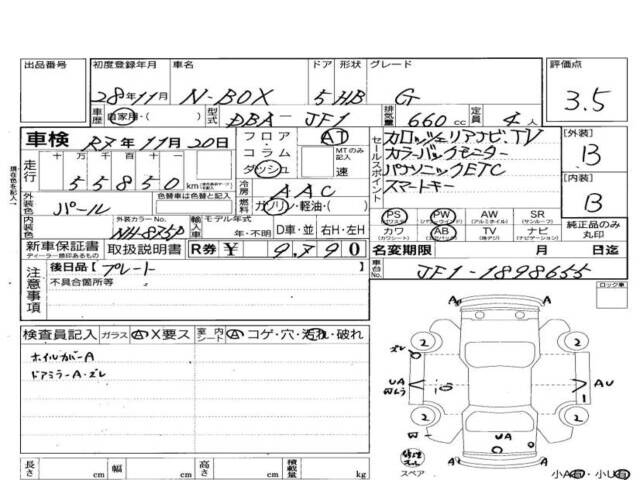 出品番号 初度登録年月 車名 ドア 形状 グレード 評価点
28年11月 N-BOX 5 HB G 3.5
車歴 自家用・( ) 型式 DBA-JF1 排気量 660 cc 定員 4人
車検 R7年11月20日 フロア・コラム ダッシュ AT MTのみ記入 速
走行 十万 万 千 百 十 55850 km
セールスポイント カロッツェリアナビ・TV
カラーバックモニター
パナソニックETC
スマートキー
[外装] B
[内装] B
外装色 パール 色替車は色替と記入
冷房 AAC
燃料 ガソリン・軽油・( )
内装色 外装カラーNo. NH-875P 輸入車 モデル年式 年・不明 D車・並 右H・左H
PS (パワステ) PW (パワーウインド) AW (アルミホイル) SR (サンルーフ)
カワ (カワシート) AB (エアバッグ) TV (地デジ) ナビ (ナビゲーション)
純正品のみ丸印
新車保証書 ディーラー捺印あるもの 取扱説明書 R券 ¥ 9,790
名変期限 月 日迄
注意事項 後日品 プレート
不具合箇所等
車台No. JF1-1898655
ロック車
検査員記入 ガラス A X要ス 室内シート A コゲ・穴・汚れ・破れ
ホイルカバーA
ドアミラーA・ズレ
A A
2 2
ズレ
UA AU
1
2 2
凹 UA
スペア
A A
長さ cm 幅 cm 高さ cm 積載量 kg
小A有・小U有